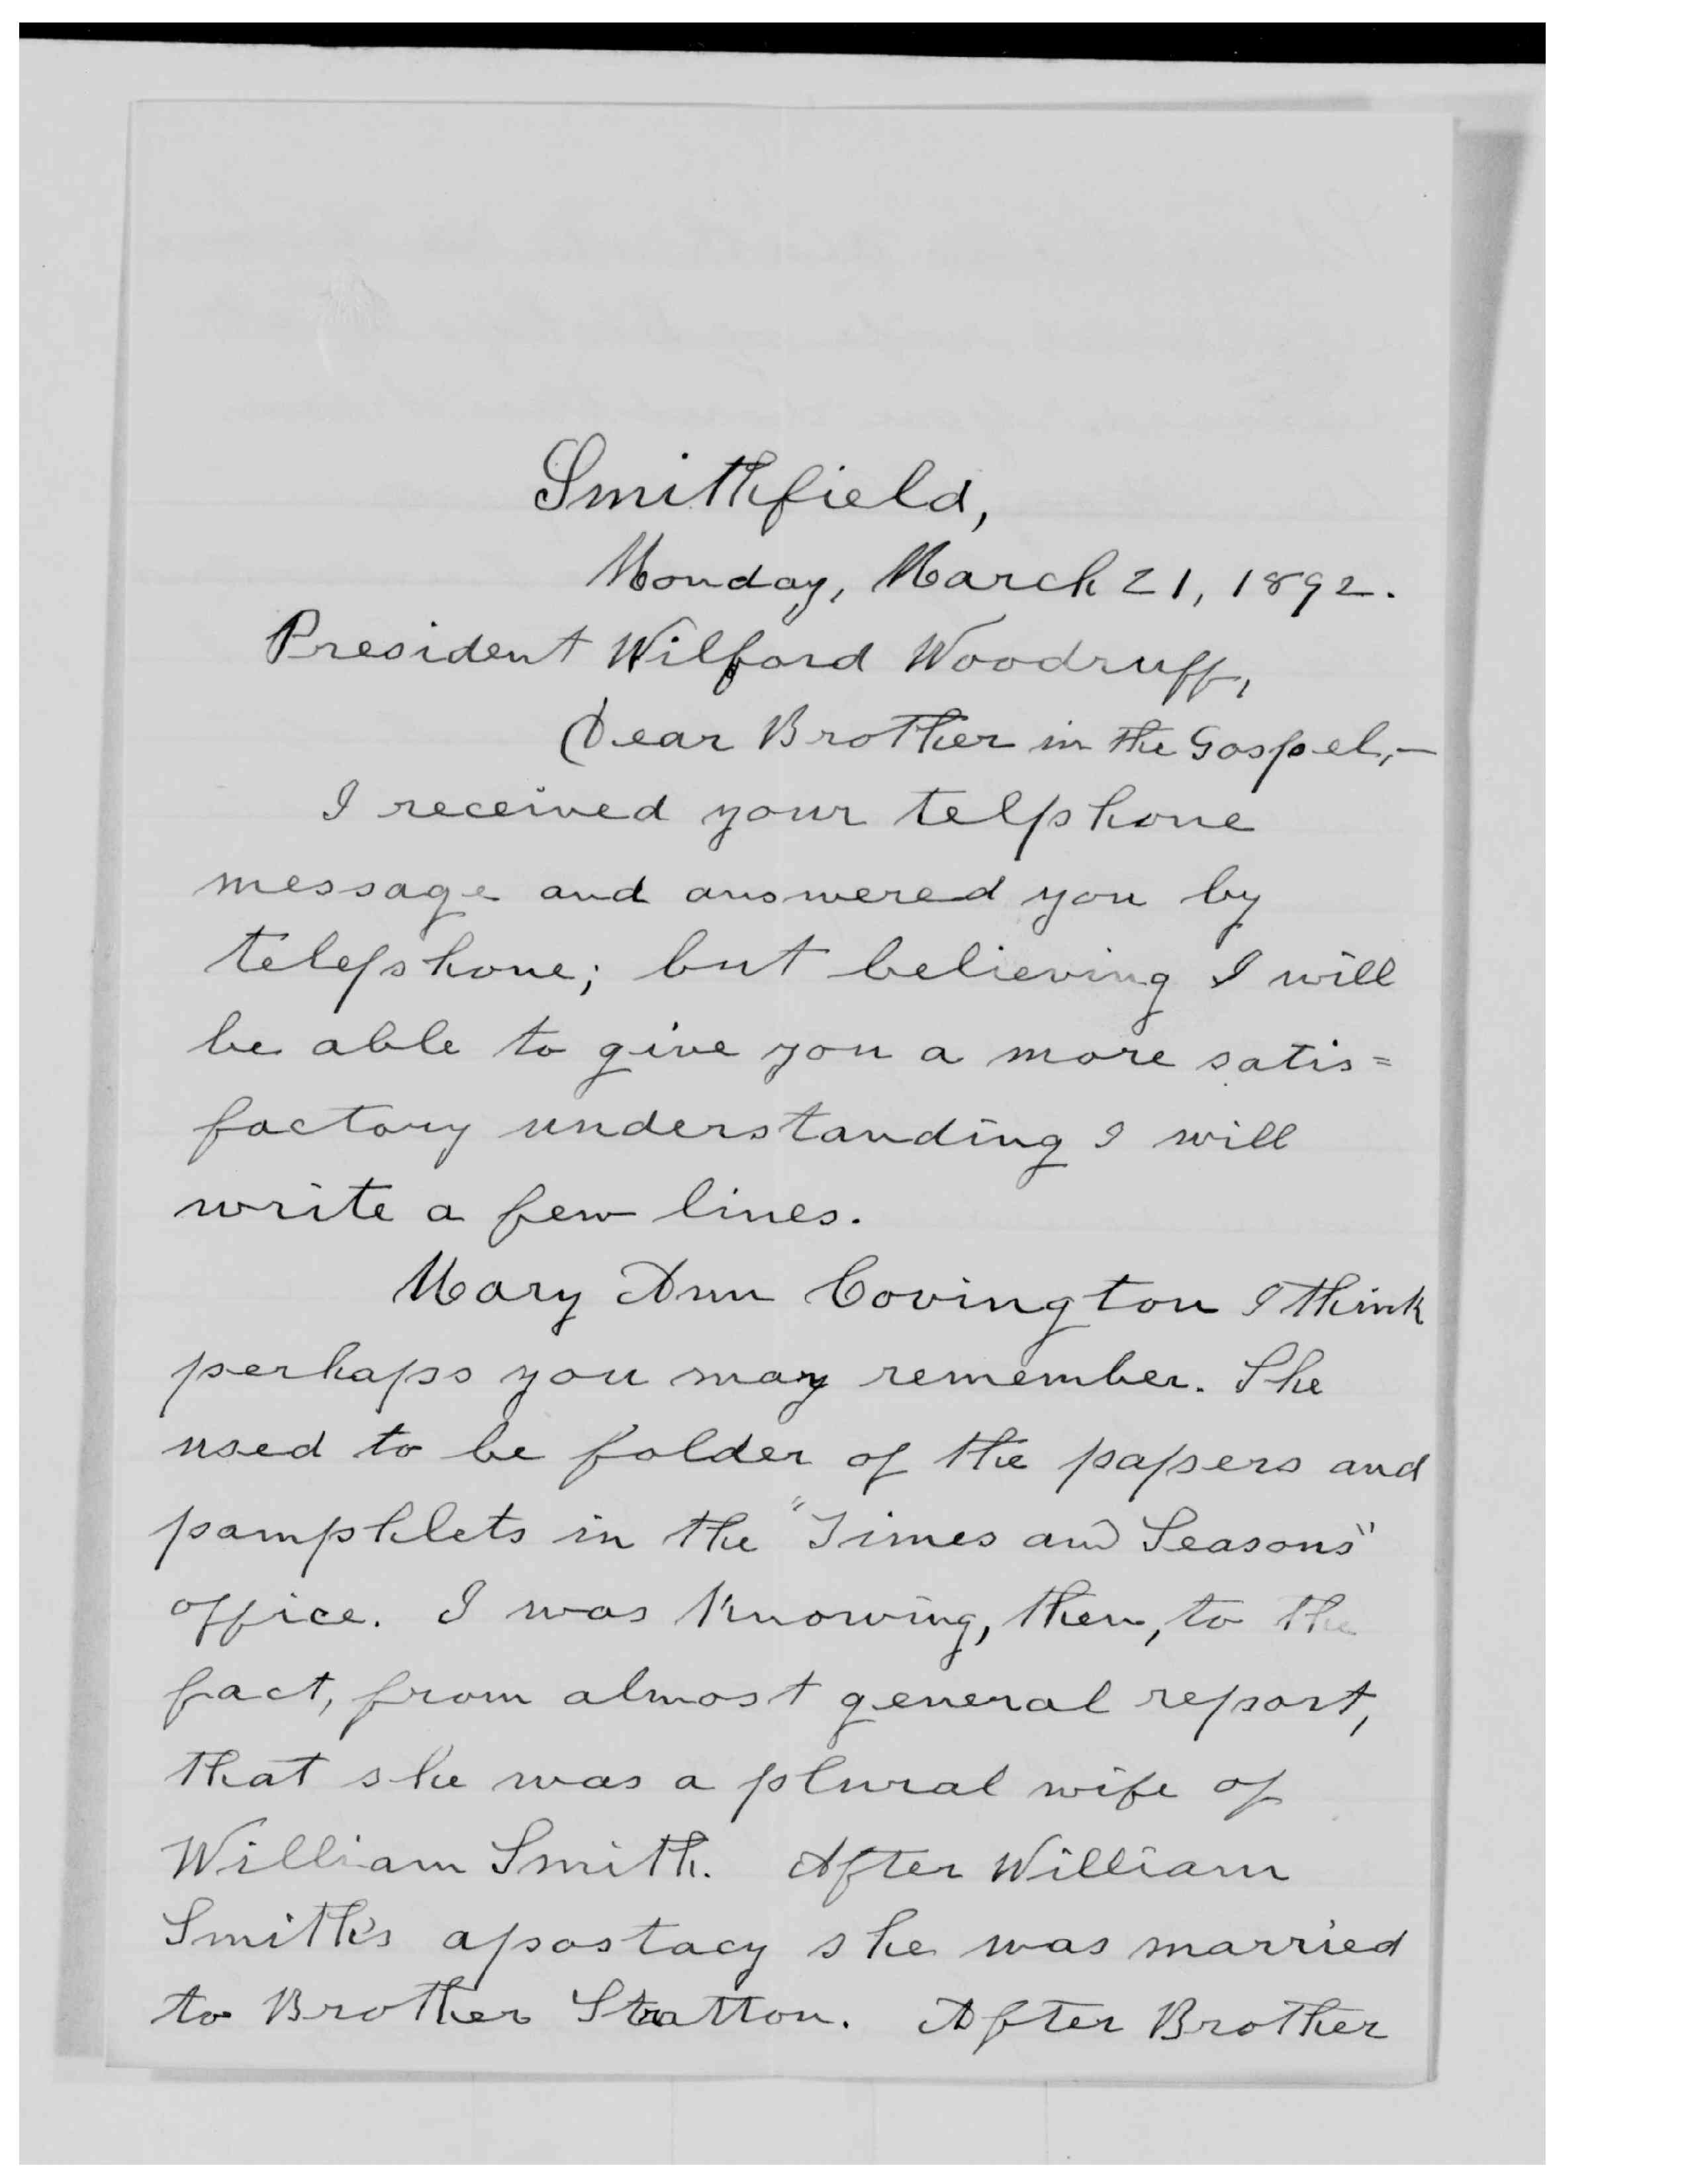 Smithfield,
Monday, March 21, 1892.
President Wilford Woodruff,
Dear Brother in the Gospel,—
I received your telphone
message and answered you by
telephone; but believing I will
be able to give you a more satis=
factory understanding I will
write a few lines.
Mary Ann Covington I think
perhaps you may remember. She
used to be folder of the papers and
pamphlets in the "Times and Seasons"
office. I was knowing, then, to the
fact, from almost general report,
that she was a plural wife of
William Smith. After William
Smith's apostacy she was married
to Brother Stratton. After Brother